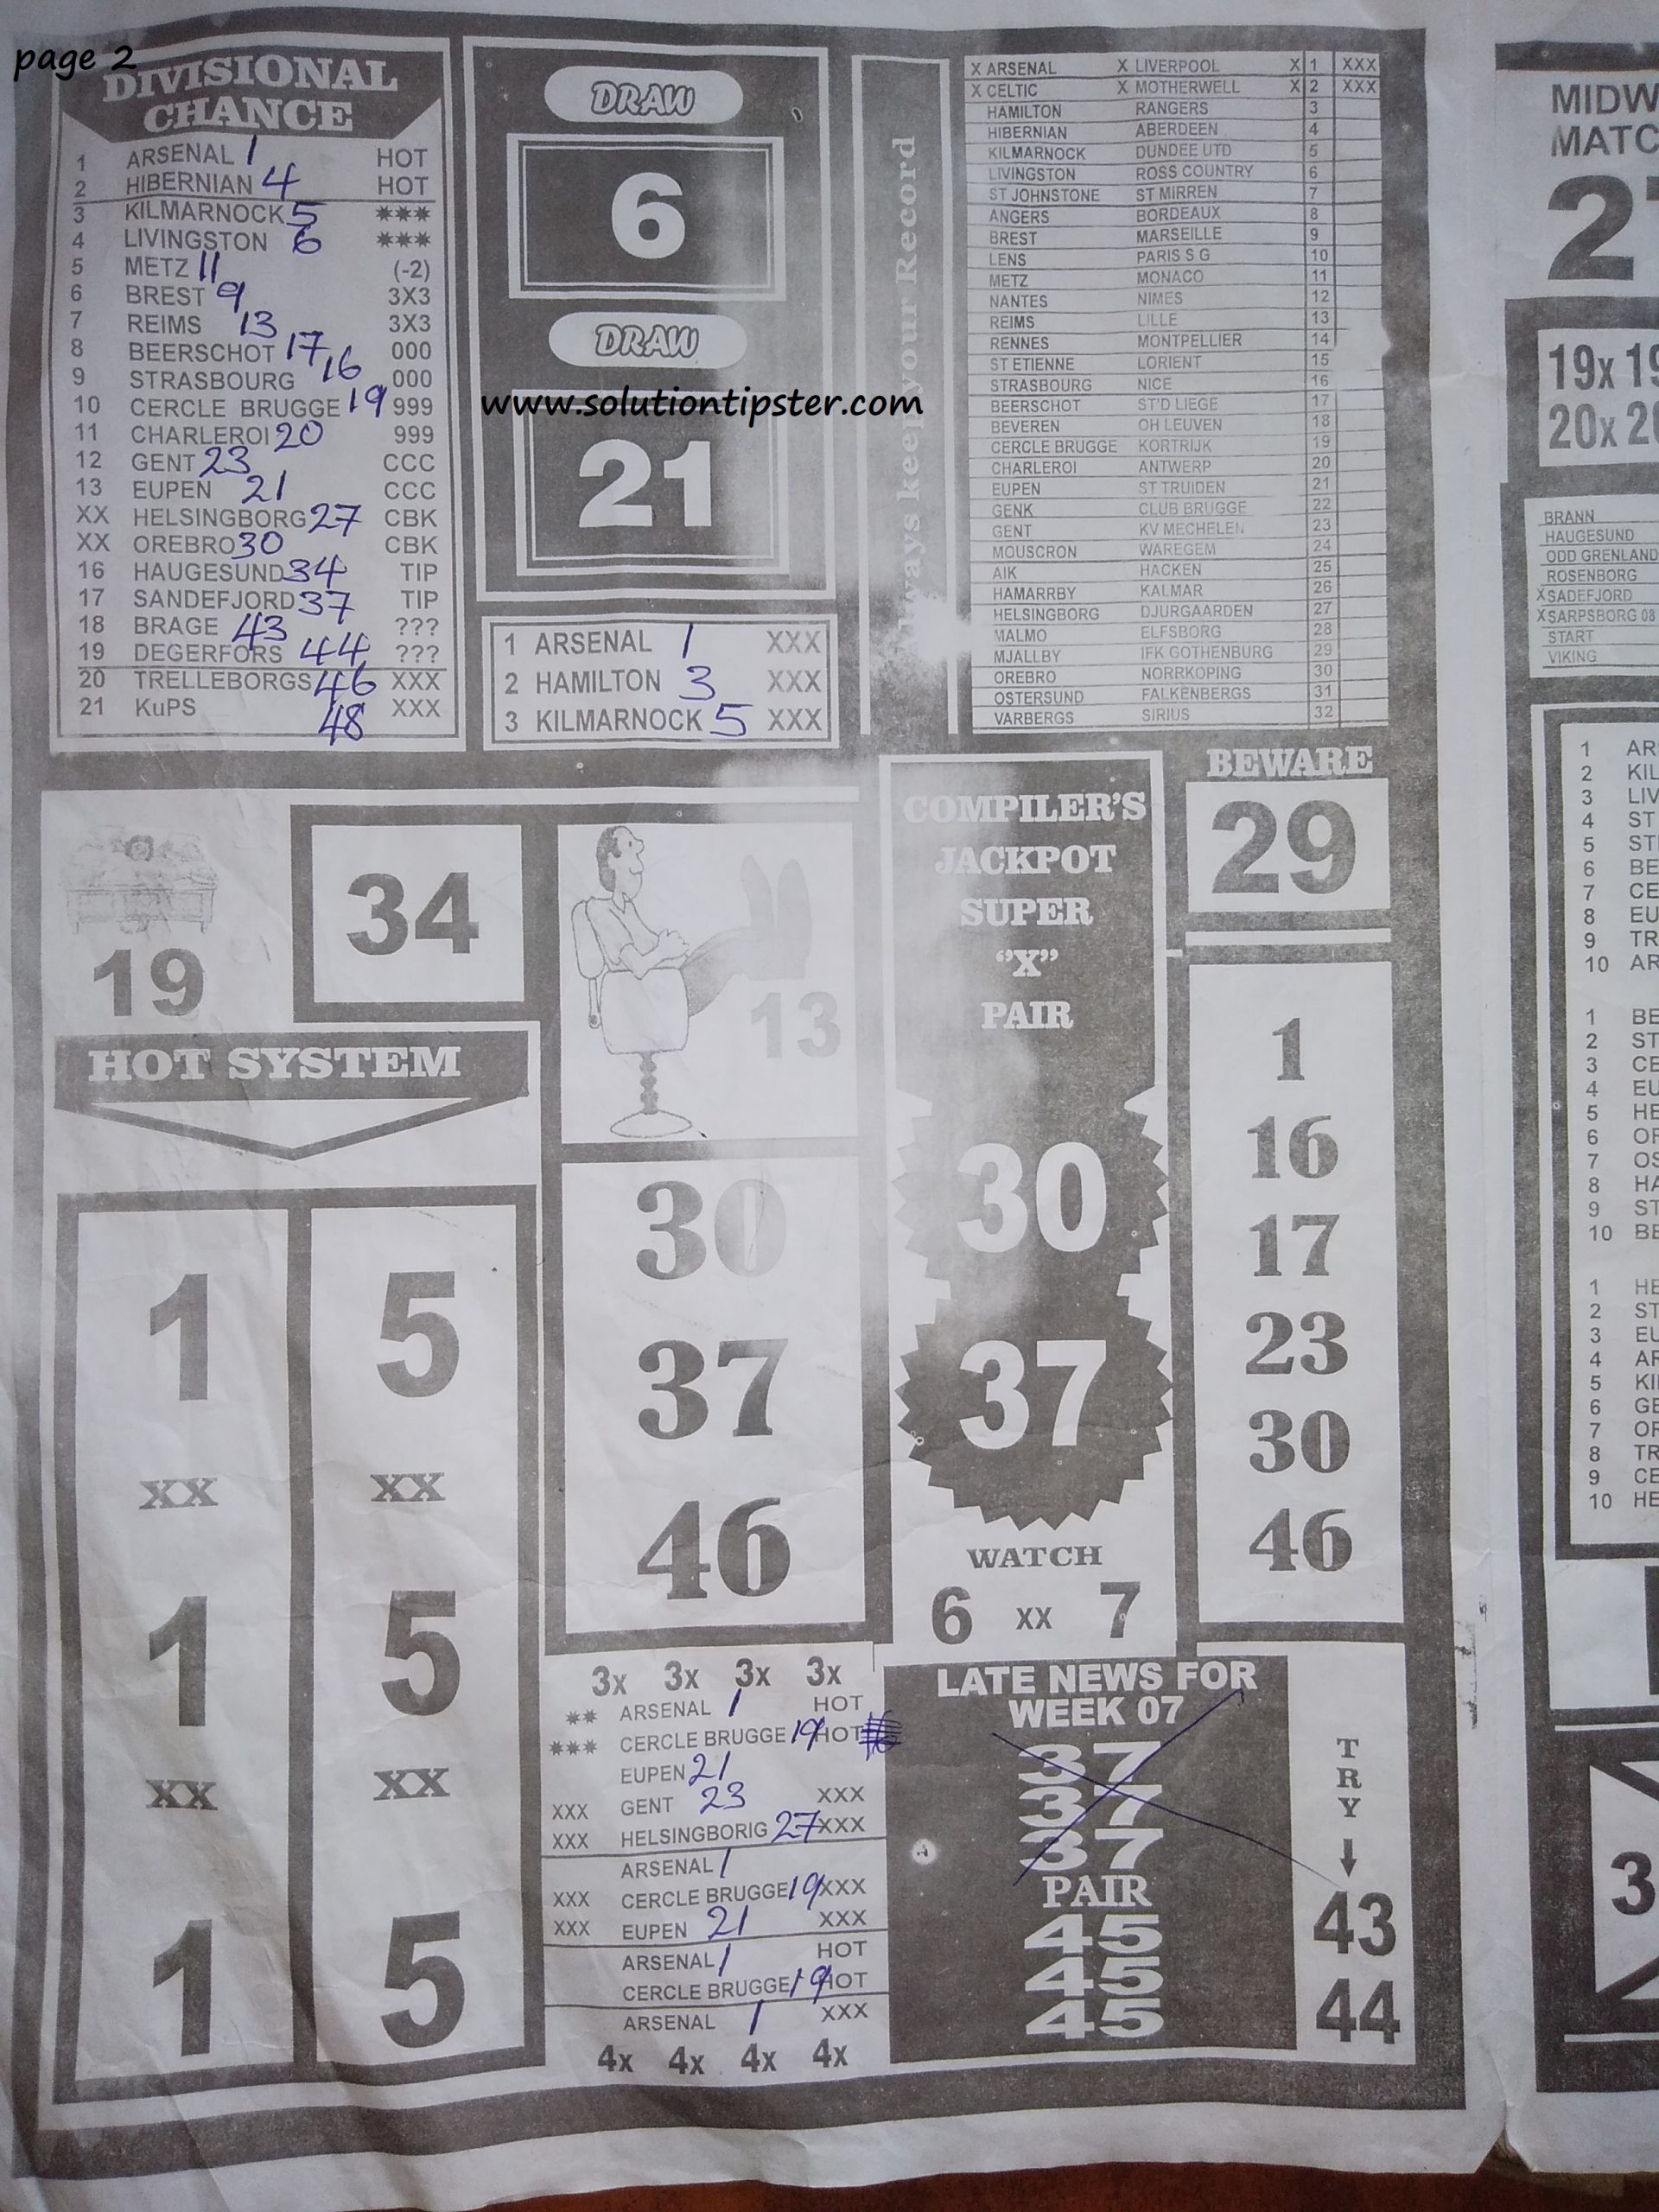 page 2
DIVISIONAL
CHANCE
1 ARSENAL 1 HOT
2 HIBERNIAN 4 HOT
3 KILMARNOCK 5 ***
4 LIVINGSTON 6 ***
5 METZ 11 (-2)
6 BREST 9 3X3
7 REIMS 13 3X3
8 BEERSCHOT 17 000
9 STRASBOURG 16 000
10 CERCLE BRUGGE 19 999
11 CHARLEROI 20 999
12 GENT 23 CCC
13 EUPEN 21 CCC
XX HELSINGBORG 27 CBK
XX OREBRO 30 CBK
16 HAUGESUND 34 TIP
17 SANDEFJORD 37 TIP
18 BRAGE 43 ???
19 DEGERFORS 44 ???
20 TRELLEBORGS 46 XXX
21 KuPS 48 XXX
DRAW
6
DRAW
www.solutiontipster.com
21
1 ARSENAL 1 XXX
2 HAMILTON 3 XXX
3 KILMARNOCK 5 XXX
Always keep your Record
X ARSENAL X LIVERPOOL X 1 XXX
X CELTIC X MOTHERWELL X 2 XXX
HAMILTON RANGERS 3
HIBERNIAN ABERDEEN 4
KILMARNOCK DUNDEE UTD 5
LIVINGSTON ROSS COUNTRY 6
ST JOHNSTONE ST MIRREN 7
ANGERS BORDEAUX 8
BREST MARSEILLE 9
LENS PARIS S G 10
METZ MONACO 11
NANTES NIMES 12
REIMS LILLE 13
RENNES MONTPELLIER 14
ST ETIENNE LORIENT 15
STRASBOURG NICE 16
BEERSCHOT ST'D LIEGE 17
BEVEREN OH LEUVEN 18
CERCLE BRUGGE KORTRIJK 19
CHARLEROI ANTWERP 20
EUPEN ST TRUIDEN 21
GENK CLUB BRUGGE 22
GENT KV MECHELEN 23
MOUSCRON WAREGEM 24
AIK HACKEN 25
HAMARRBY KALMAR 26
HELSINGBORG DJURGAARDEN 27
MALMO ELFSBORG 28
MJALLBY IFK GOTHENBURG 29
OREBRO NORRKOPING 30
OSTERSUND FALKENBERGS 31
VARBERGS SIRIUS 32
19
34
13
HOT SYSTEM
1 5
XX XX
1 5
XX XX
1 5
30
37
46
COMPILER'S
JACKPOT
SUPER
"X"
PAIR
30
37
WATCH
6 XX 7
BEWARE
29
1
16
17
23
30
46
3x 3x 3x 3x
** ARSENAL 1 HOT
*** CERCLE BRUGGE 19 HOT
EUPEN 21
XXX GENT 23 XXX
XXX HELSINGBORIG 27 XXX
ARSENAL 1
XXX CERCLE BRUGGE 19 XXX
XXX EUPEN 21 XXX
ARSENAL 1 HOT
CERCLE BRUGGE 19 HOT
ARSENAL 1 XXX
4x 4x 4x 4x
LATE NEWS FOR
WEEK 07
37
37
37
PAIR
45
45
45
TRY
43
44
MIDW
MATC
2
19x 19
20x 20
BRANN
HAUGESUND
ODD GRENLAND
ROSENBORG
X SADEFJORD
X SARPSBORG 08
START
VIKING
1 AR
2 KIL
3 LIV
4 ST
5 ST
6 BE
7 CE
8 EU
9 TR
10 AR
1 BE
2 ST
3 CE
4 EU
5 HE
6 OR
7 OS
8 HA
9 ST
10 BE
1 HE
2 ST
3 EU
4 AR
5 KI
6 GE
7 OR
8 TR
9 CE
10 HE
3